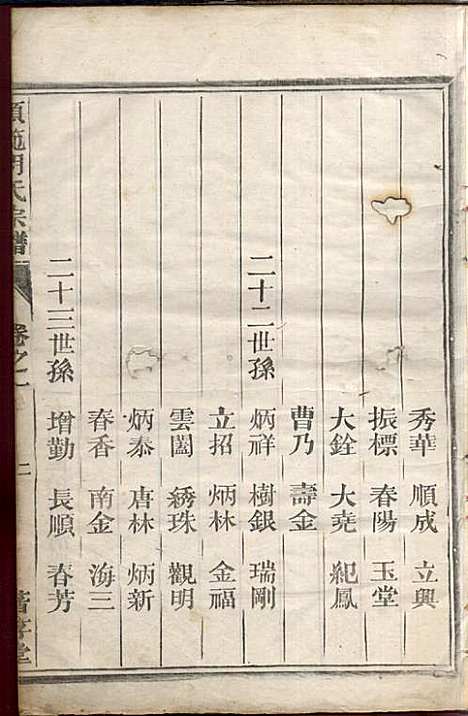 秀華 順成 立興
振標 春陽 玉堂
大銓 大堯 紀鳳
曹乃 壽金
二十二世孫 炳祥 樹銀 瑞剛
立招 炳林 金福
雲闓 綉珠 觀明
炳泰 唐林 炳新
春香 南金 海三
二十三世孫 增勤 長順 春芳
氏宗譜 卷之二 二